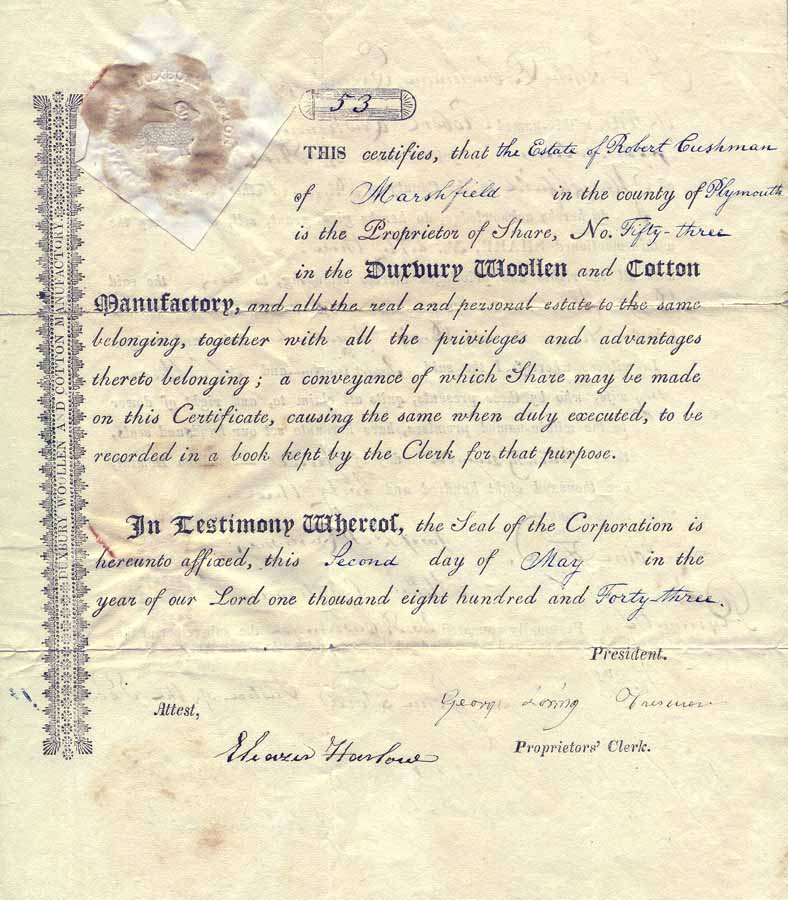 53
THIS certifies, that the Estate of Robert Cushman
of Marshfield in the county of Plymouth
is the Proprietor of Share, No. Fifty-three
in the Duxbury Woollen and Cotton
Manufactory, and all the real and personal estate to the same
belonging, together with all the privileges and advantages
thereto belonging; a conveyance of which Share may be made
on this Certificate, causing the same when duly executed, to be
recorded in a book kept by the Clerk for that purpose.
In Testimony Whereof, the Seal of the Corporation is
hereunto affixed, this Second day of May in the
year of our Lord one thousand eight hundred and Forty-three.
President.
George Loring
Attest,
Eleazer Harlow Proprietors' Clerk.
DUXBURY WOOLLEN AND COTTON MANUFACTORY